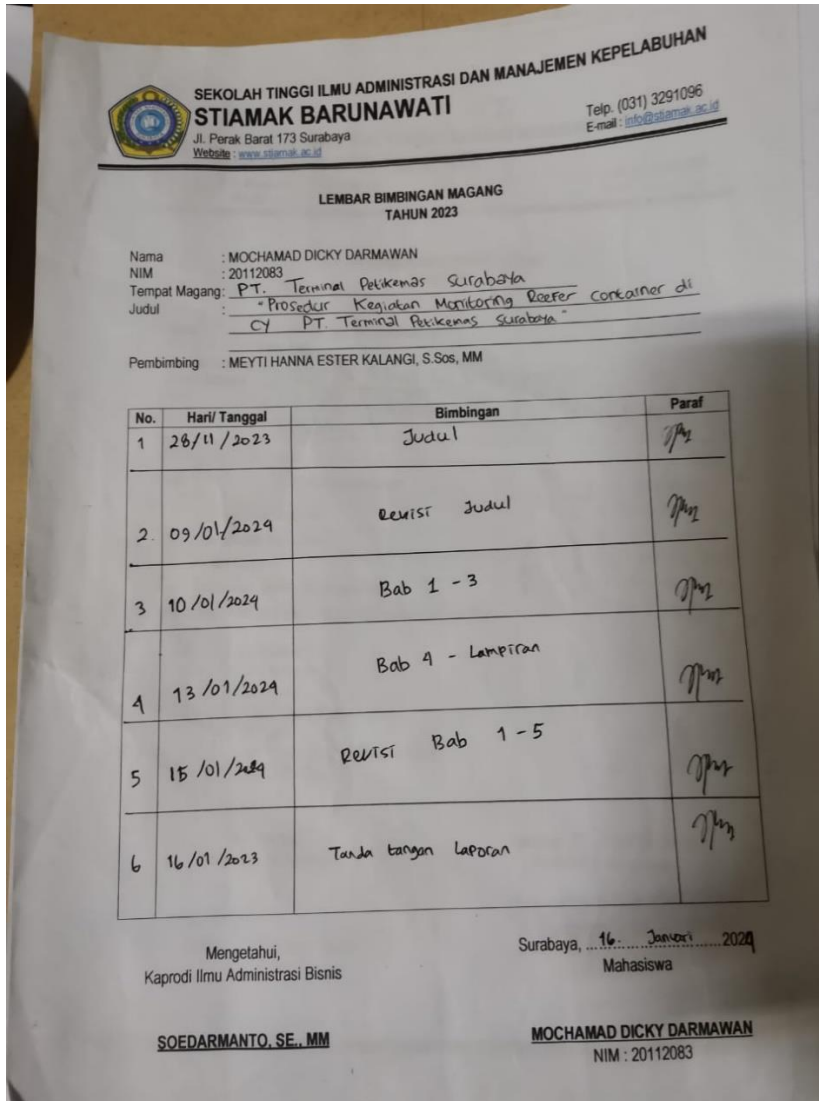 SEKOLAH TINGGI ILMU ADMINISTRASI DAN MANAJEMEN KEPELABUHAN
STIAMAK BARUNAWATI
Jl. Perak Barat 173 Surabaya
Website : www.stiamak.ac.id
Telp. (031) 3291096
E-mail : info@stiamak.ac.id
LEMBAR BIMBINGAN MAGANG
TAHUN 2023
Nama : MOCHAMAD DICKY DARMAWAN
NIM : 20112083
Tempat Magang: PT. Terminal Petikemas Surabaya
Judul : "Prosedur Kegiatan Monitoring Reefer Container di
CY PT. Terminal Petikemas Surabaya"
Pembimbing : MEYTI HANNA ESTER KALANGI, S.Sos, MM
No. Hari/ Tanggal Bimbingan Paraf
1 28/11/2023 Judul
2. 09/01/2024 Revisi Judul
3 10/01/2024 Bab 1 - 3
4 13/01/2024 Bab 4 - Lampiran
5 15/01/2024 Revisi Bab 1 - 5
6 16/01/2023 Tanda tangan Laporan
Mengetahui,
Kaprodi Ilmu Administrasi Bisnis
SOEDARMANTO, SE., MM
Surabaya, ...16. Januari ......2024
Mahasiswa
MOCHAMAD DICKY DARMAWAN
NIM : 20112083